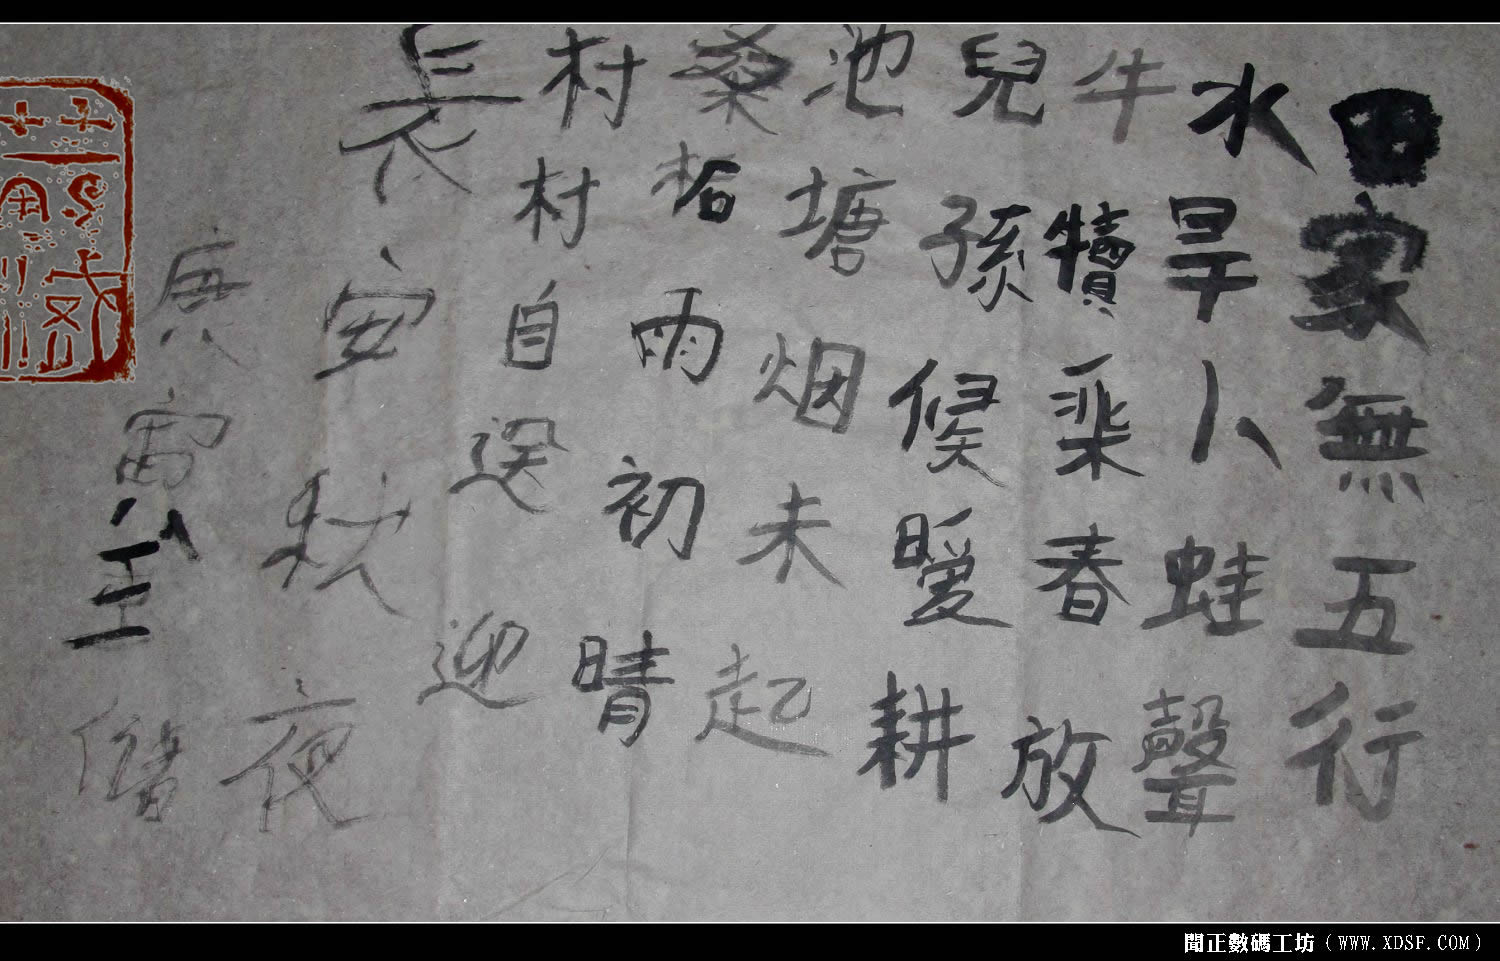 田家無五行
水旱卜蛙聲
牛犢乘春放
兒孫候暖耕
池塘烟未起
桑柘雨初晴
村村自送迎
長安秋夜
庚寅八王儲
聞正數碼工坊（WWW.XDSF.COM）